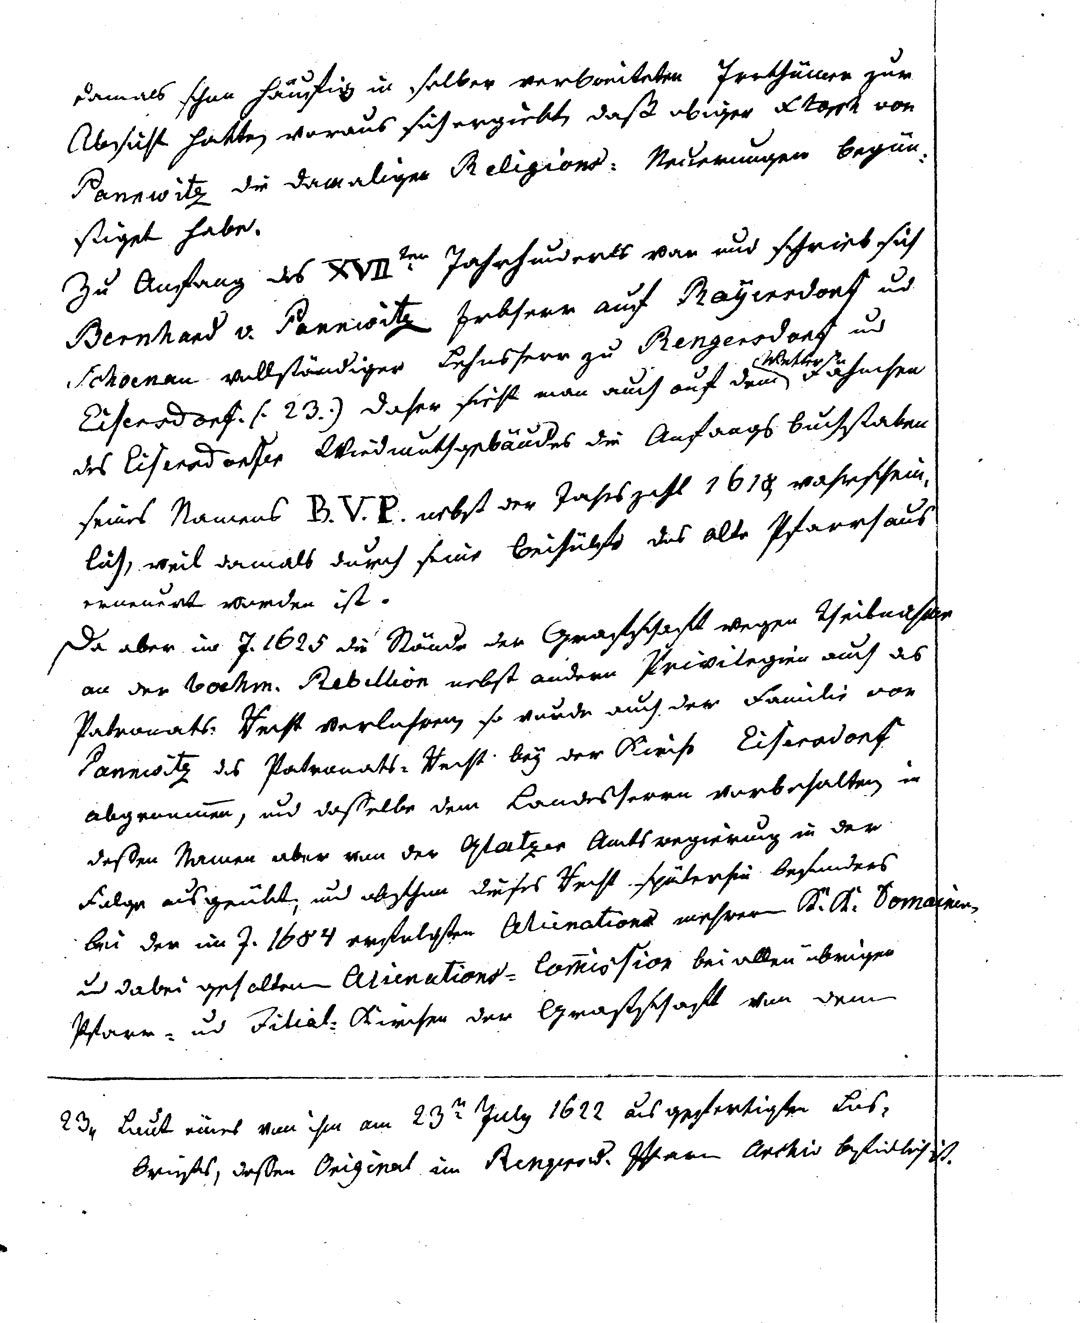 damals schon häufig in selber verbreiteten Irrthümer zur
Absicht hatte, woraus sich ergiebt, daß obiger von
Pannwitz die damaligen Religions: Neuerungen begün:
stiget habe.
Zu Anfang des XVII ten Jahrhunderts war und schrieb sich
Bernhard v. Pannwitz Erbherr auf Rayersdorf und
Schoenau vollständiger Lehnsherr zu Rengersdorf und
Eisersdorf. (: 23 :) daher sieht man auch auf dem Wetter Fähnchen
des Eisersdorfer Wiedmuthgebäudes die Anfangs buchstaben
seines Namens B. V. P. nebst der Jahrszahl 1618 wahrschein,
lich, weil damals durch seine Beihülfe das alte Pfarrhaus
erneuert worden ist.
Da aber im J. 1625 die Stände der Grafschaft wegen Theilnahme
an der boehm. Rebellion nebst andern Privilegien auch das
Patronats: Recht verlohren, so wurde auch der Familie von
Pannwitz das Patronats= Recht bey der Kirche Eisersdorf
abgenommen, und dasselbe dem Landesherrn vorbehalten, in
deßen Namen aber von der Glatzer Amtsregierung in der
Folge ausgeübt, und obschon dieses Recht späterhin besonders
bei der im J. 1684 erfolgten Alienations mehrern K. K. Domainen,
und dabei gehaltenen Alienations= Commission bei allen übrigen
Pfarr= und Filial: Kirchen der Grafschaft von dem
23, Laut eines von ihm am 23n July 1622 ausgefertigten Los,
briefs, deßen Original im Rengersd. Pfarr Archiv befindlich ist.